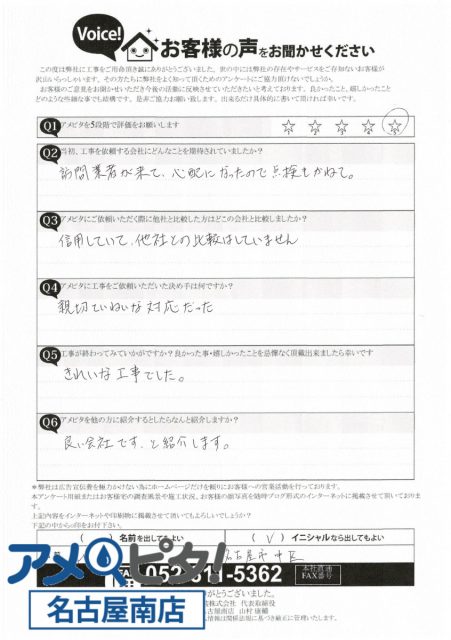 Voice!
お客様の声をお聞かせください
この度は弊社に工事をご用命頂き誠にありがとうございました。世の中には弊社の存在やサービスをご存知ないお客様が
沢山いらっしゃいます。その方たちに弊社をよく知って頂くためのアンケートにご協力頂けないでしょうか。
お客様のご意見をお聞かせいただき今後の活動に反映させていただきたいと考えております。良かったこと、嬉しかったこと
どのような些細な事でも結構です。是非ご協力お願い致します。出来るだけ具体的に書いて頂ければ幸いです。
Q1 アメピタを5段階で評価をお願いします
☆1 ☆2 ☆3 ☆4 ☆5
Q2 当初、工事を依頼する会社にどんなことを期待されていましたか?
訪問業者が来て、心配になったので点検もかねて。
Q3 アメピタにご依頼いただく際に他社と比較した方はどこの会社と比較しましたか?
信用していて、他社との比較はしていません
Q4 アメピタに工事をご依頼いただいた決め手は何ですか?
親切ていねいな対応だった
Q5 工事が終わってみていかがですか?良かった事・嬉しかったことを忌憚なく頂戴出来ましたら幸いです
きれいな工事でした。
Q6 アメピタを他の方に紹介するとしたらなんと紹介しますか?
良い会社です、と紹介します。
*弊社は広告宣伝費を極力かけない為にホームページだけを頼りにお客様への営業活動を行っております。
本アンケート用紙またはお客様宅の調査風景や施工状況、お客様の顔写真を随時ブログ形式のインターネットに掲載させて頂いております。
上記内容をインターネットや印刷物に掲載させて頂いてもよろしいでしょうか?
下記の中から○印をお付下さい。
( ) 名前を出してもよい
( ✓ ) イニシャルなら出してもよい
名古屋市中区
アメピタ!
名古屋南店
-5362
本社直通
FAX番号
ありがとうございました。
株式会社 代表取締役
名古屋南店 山村 康輔
情報は関係法規に基づき厳正に管理いたします。